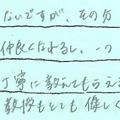 ないですが、その分
仲良くなれるし、一つ
丁寧に教えてもらえ
教授もとても優しく